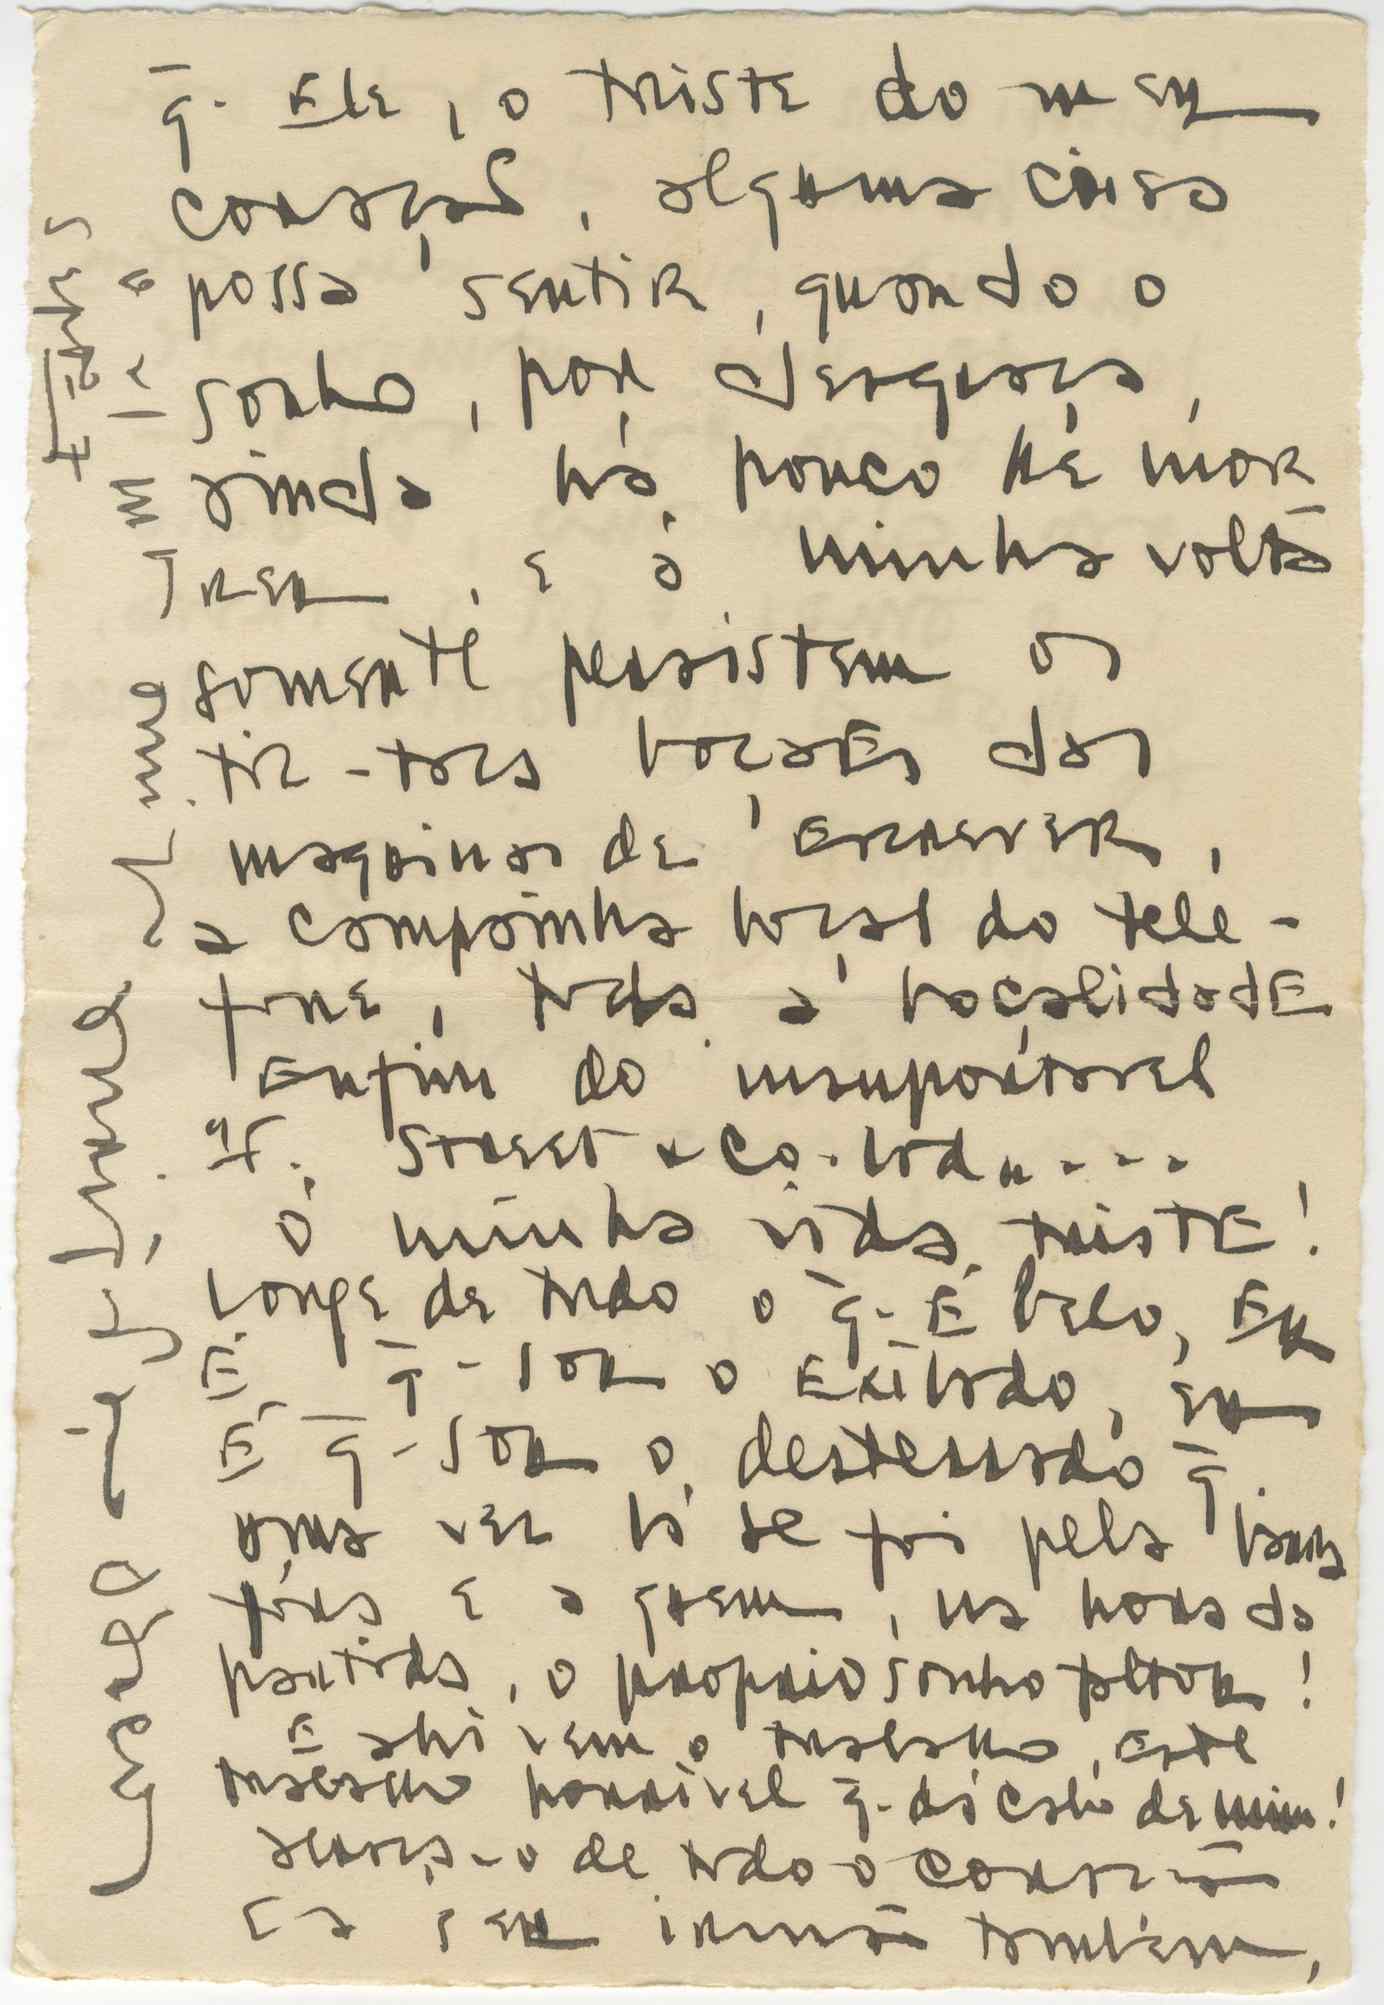 q̄. Ele, o triste do meu
coração, alguma coisa
possa sentir, quando o
sonho, por desgraça,
ainda há pouco lhe mor
reu, e à minha volta
somente persistem os
tic-tacs boçaes das
maquinas de escrever,
a campainha boçal do tele-
fone, toda a boçalidade
enfim do insuportavel
H. Street & Co. Ltd....
Ó minha vida triste!
Longe de tudo o q̄. é belo, eu
é q̄- sou o exilado, eu
é q̄- sou o desterrado q̄.
uma vez lá se foi pela barra
fóra e a quem, na hora da
partida, o proprio sonho faltou!
E ahi vem o trabalho, este
trabalho horrivel q̄. dá cabo de mim!
Abraça-o de todo o coração
o seu irmão tambem,